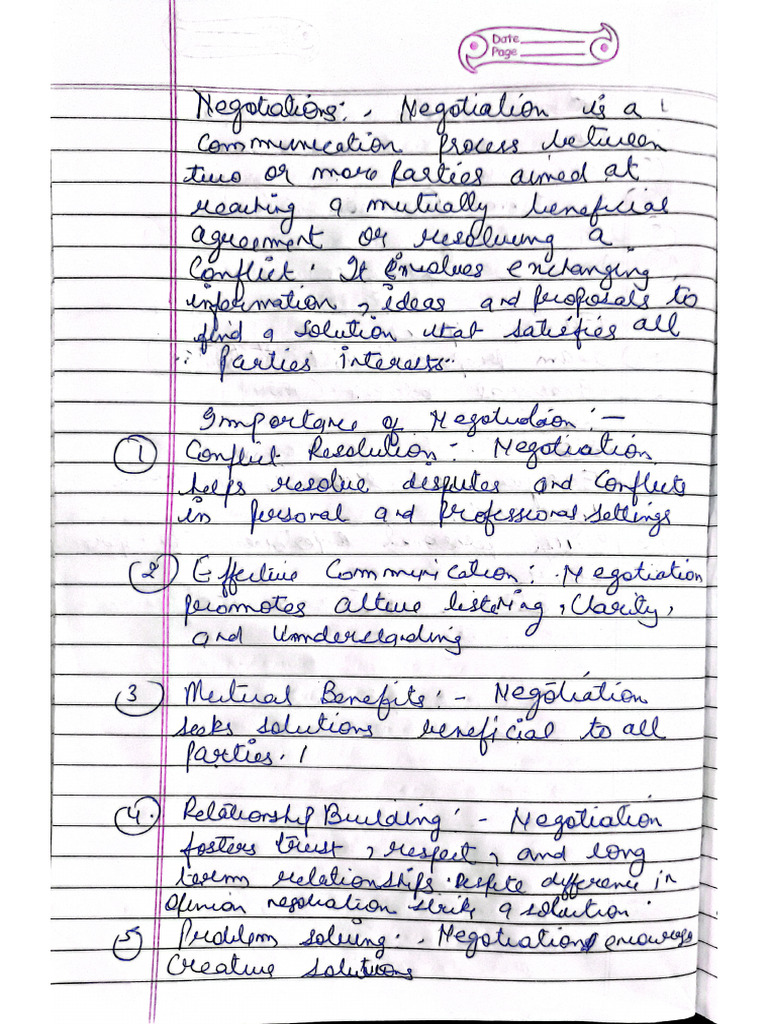 Date
Page
Negotiations:. Negotiation is a
communication process between
two or more parties aimed at
reaching a mutually beneficial
agreement or resolving a
conflict. It involves exchanging
information, ideas and proposals to
find a solution that satisfies all
parties interests.
Importance of Negotiation :-
1 Conflict Resolution :- Negotiation
helps resolve disputes and conflicts
in personal and professional settings
2 Effective Communication: Negotiation
promotes active listening, Clarity,
and Understanding
3 Mutual Benefits:- Negotiation
seeks solutions beneficial to all
parties.
4. Relationship Building:- Negotiation
fosters trust, respect, and long
term relationships. Despite difference in
opinion negotiation strike a solution.
5 Problem solving:. Negotiation encourages
creative solutions